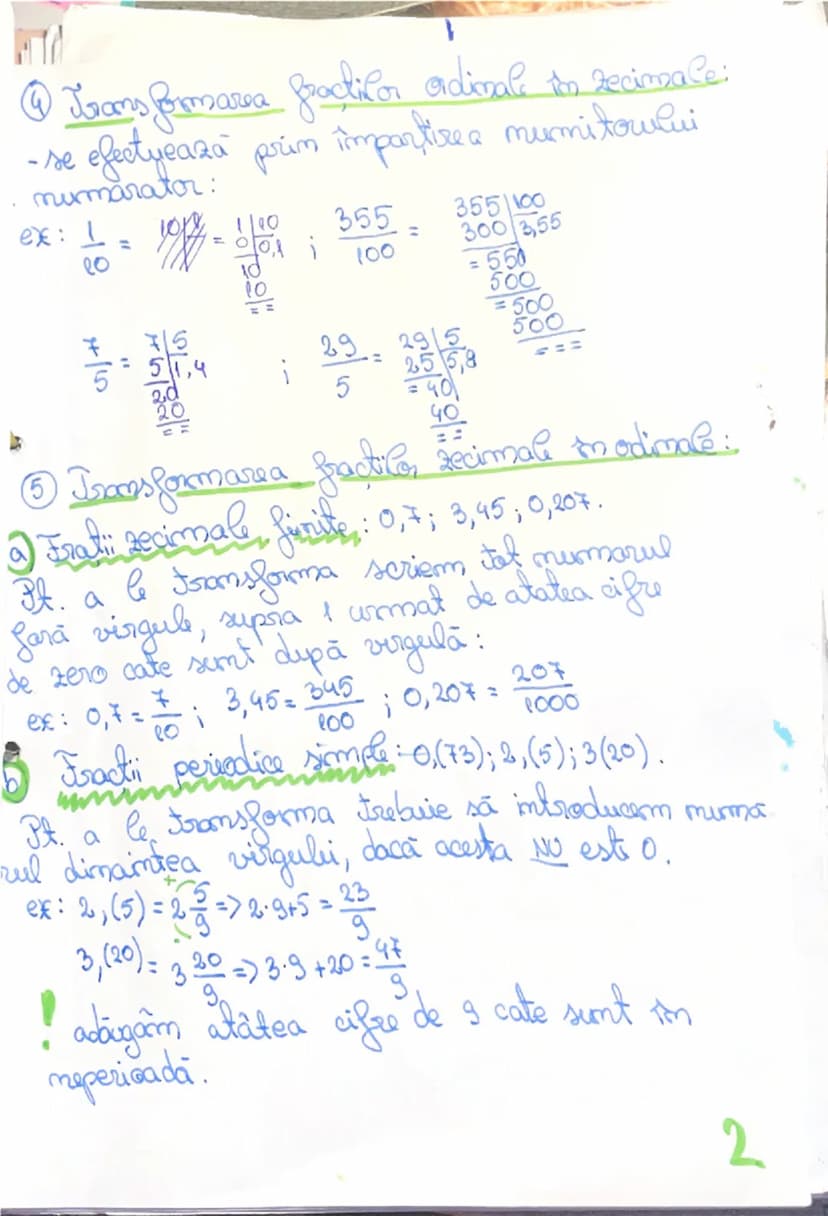 ④ Transformarea fracțiilor ordinale în zecimale:
- se efectuează prin împărțirea numitorului
numărator:
ex: 1/10 = = 1 | 10 ; 355/100 = 355 | 100
0 | 0,1 300 | 3,55
10 = 550
10 500
= = = 500
500
= = =
7/5 = 7 | 5 ; 29/5 = 29 | 5
5 | 1,4 25 | 5,8
20 = 40
20 40
= = = =
⑤ Transformarea fracțiilor zecimale în ordinale:
a) Frații zecimale finite: 0,7; 3,45; 0,207.
Pt. a le transforma scriem tot numărul
fară virgule, supra 1 urmat de atatea cifre
de zero cate sunt după virgulă:
ex: 0,7 = 7/10; 3,45 = 345/100; 0,207 = 207/1000
b) Fracții periodice simple: 0,(73); 2,(5); 3(20).
Pt. a le transforma trebuie să introducem numă
rul dinaintea virgului, dacă acesta NU este 0.
ex: 2,(5) = 2 5/9 => 2·9+5 = 23/9
3,(20) = 3 20/9 => 3·9+20 = 47/9
! adăugăm atâtea cifre de 9 cate sunt în
neperioadă.
2